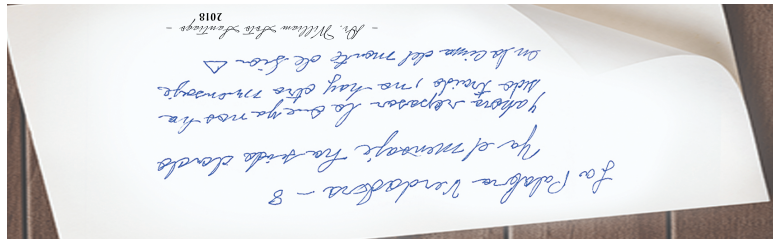 La Palabra Verdadera - 8
Ya el mensaje ha sido dado
y ahora repasar lo que ya nos ha
sido traido, no hay otro mensaje
en la cima del monte de Sion △
- Dr. William Soto Santiago -
2018